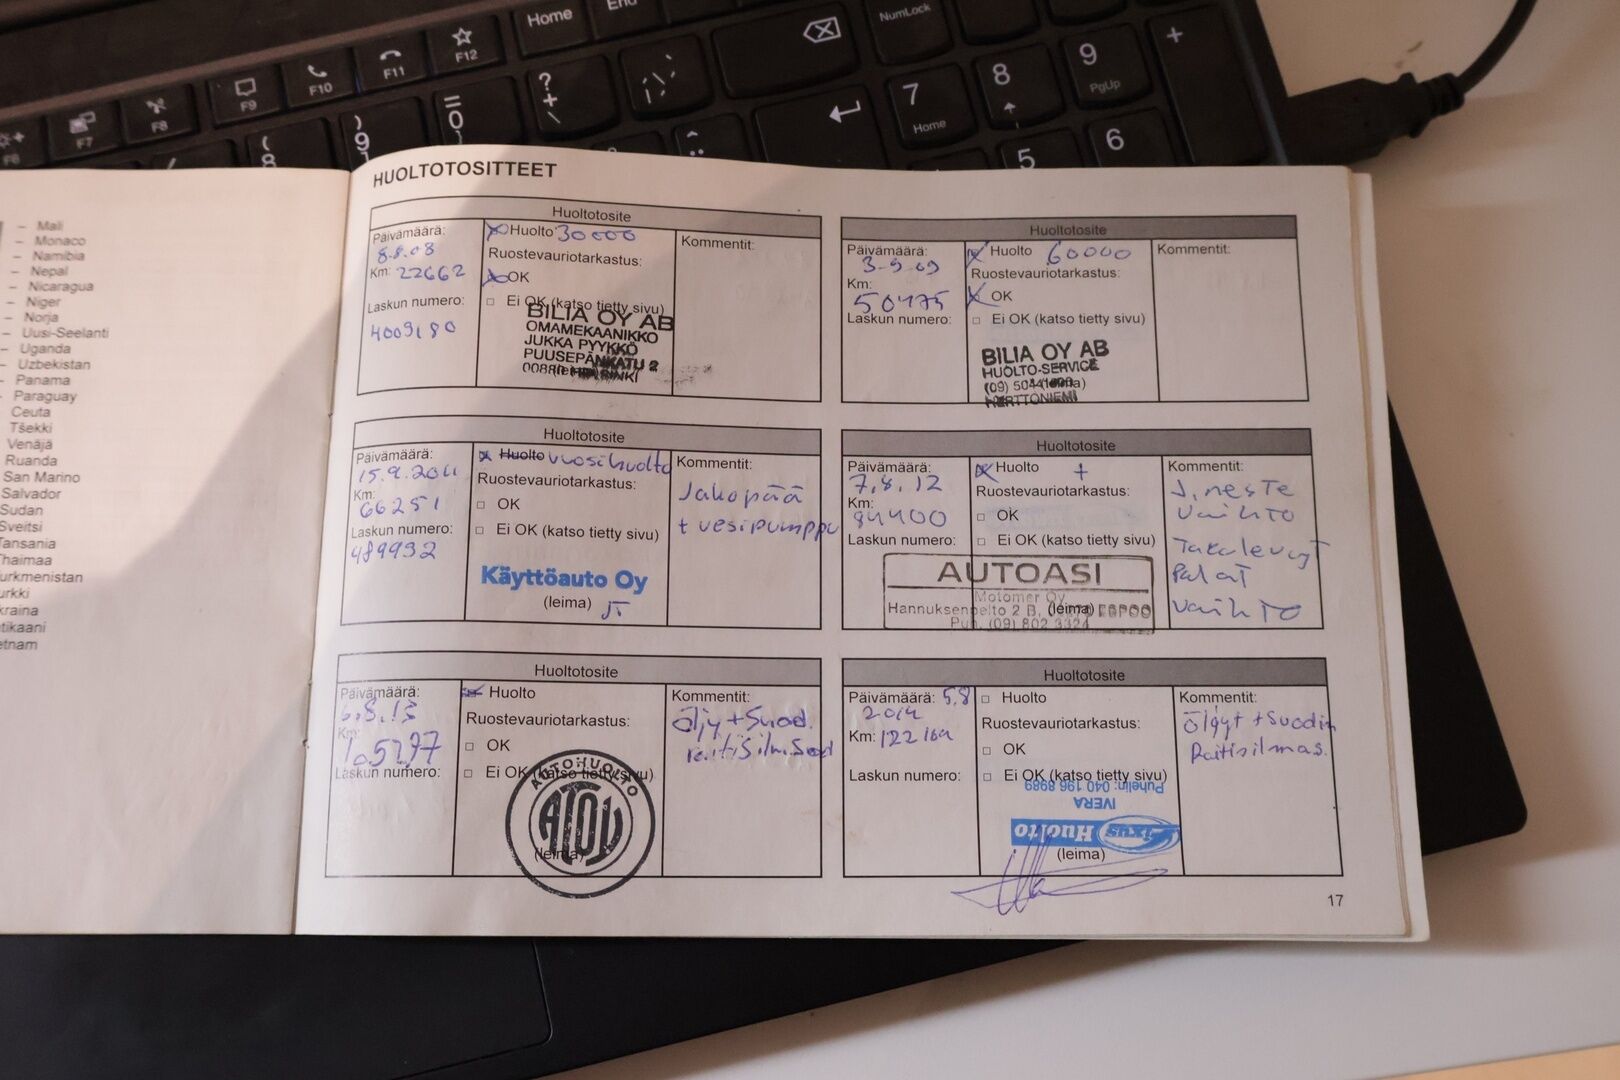 Home
End
NumLock
F6
F7
F8
F9
F10
F11
F12
?
+
\
=
0
)
9
(
8
7
Home
8
9
PgUp
+
5
6
– Mali
– Monaco
– Namibia
– Nepal
– Nicaragua
– Niger
– Norja
– Uusi-Seelanti
– Uganda
– Uzbekistan
– Panama
– Paraguay
Ceuta
Tšekki
Venäjä
Ruanda
San Marino
Salvador
Sudan
Sveitsi
Tansania
Thaimaa
urkmenistan
urkki
kraina
tikaani
etnam
HUOLTOTOSITTEET
Huoltotosite
Päivämäärä:
8.8.08
Km: 22662
Laskun numero:
4009180
Huolto 30000
Ruostevauriotarkastus:
OK
Ei OK (katso tietty sivu)
BILIA OY AB
OMAMEKAANIKKO
JUKKA PYYKKÖ
PUUSEPÄNKATU 2
HELSINKI
Kommentit:
Huoltotosite
Päivämäärä:
3-9-09
Km:
50475
Laskun numero:
Huolto 60000
Ruostevauriotarkastus:
OK
Ei OK (katso tietty sivu)
BILIA OY AB
HUOLTO-SERVICE
(09) 5044
HERTTONIEMI
Kommentit:
Huoltotosite
Päivämäärä:
15.9.2011
Km:
66251
Laskun numero:
489932
Huolto vuosihuolto
Ruostevauriotarkastus:
OK
Ei OK (katso tietty sivu)
Käyttöauto Oy
(leima)
Kommentit:
Jakopää
+ vesipumppu
Huoltotosite
Päivämäärä:
7.8.12
Km:
84400
Laskun numero:
Huolto +
Ruostevauriotarkastus:
OK
Ei OK (katso tietty sivu)
AUTOASI
Motomer Oy
Hannuksenpelto 2 B, (leima) ESPOO
Puh. (09) 802 3324
Kommentit:
J.neste
vaihto
Takalevyt
Palat
vaihto
Huoltotosite
Päivämäärä:
6.8.13
Km:
105297
Laskun numero:
Huolto
Ruostevauriotarkastus:
OK
Ei OK (katso tietty sivu)
AUTOHUOLTO
(leima)
Kommentit:
Öljy + Suod.
raitisilm.Suod
Huoltotosite
Päivämäärä: 5.8
2014
Km: 122164
Laskun numero:
Huolto
Ruostevauriotarkastus:
OK
Ei OK (katso tietty sivu)
Puhelin: 040 196 8989
IVERA
Fixus Huolto
(leima)
Kommentit:
Öljyt + Suodin
Raitisilmas.
17